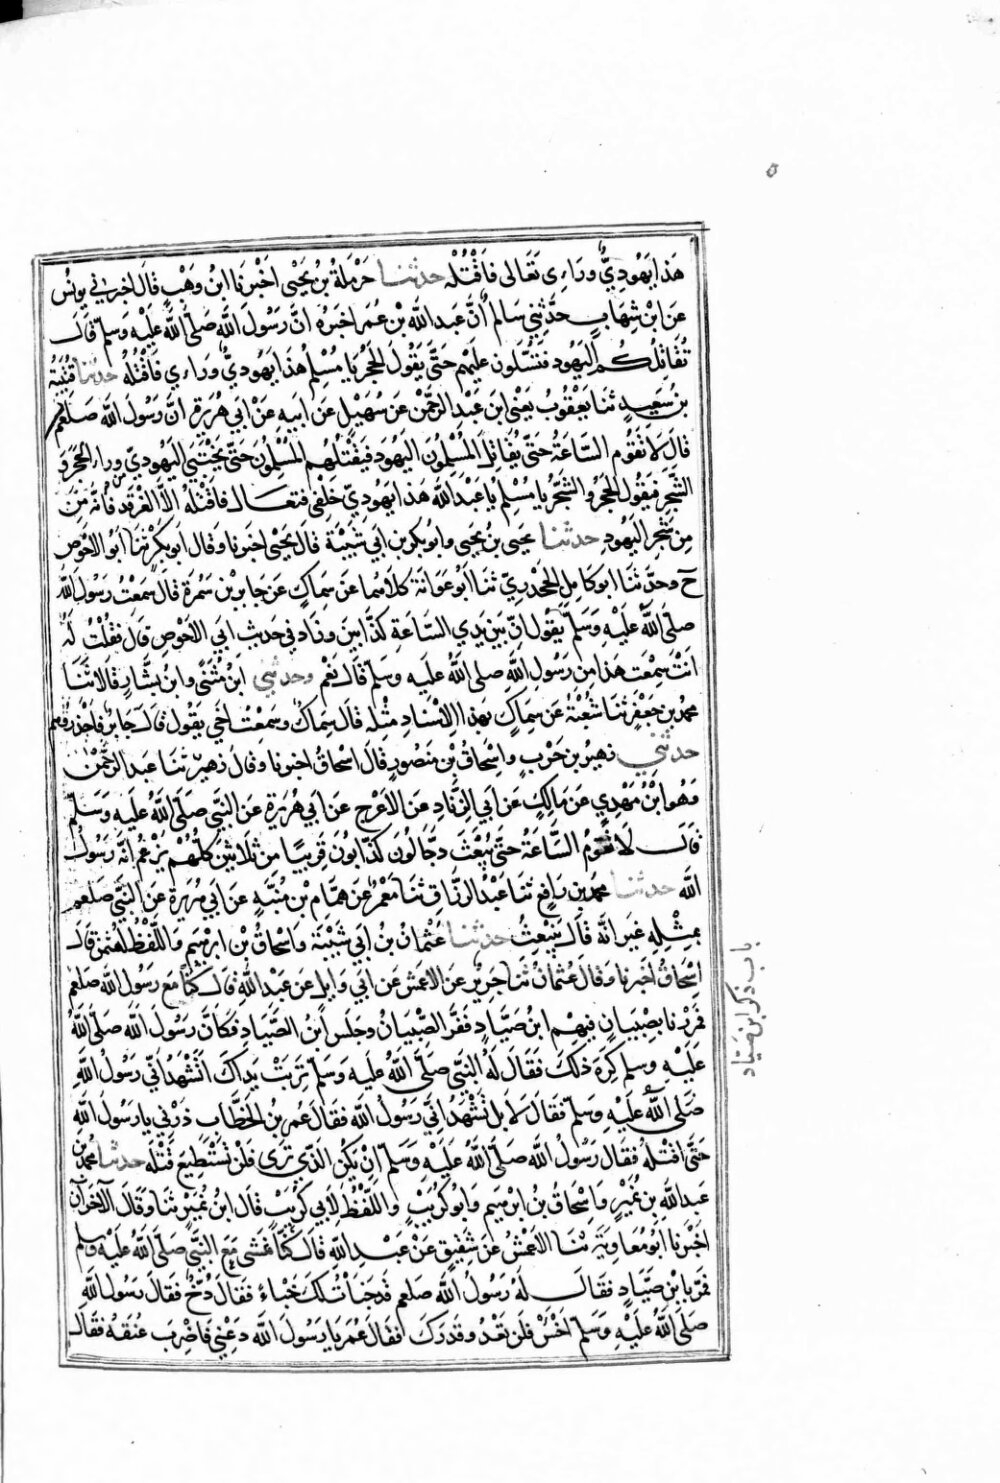 هَذَا يَهُودِيٌّ وَرَاءِى تَعَالى فَاقْتُلْه حدثنا حَرْمَلَةُ بْنُ يَحْيَى اخْبَرَنَا ابْنُ وَهْبٍ قَالَ اخبرني يونُس
عَنِ ابْنِ شِهَابٍ حَدَّثَنِي سَالِمٌ أَنَّ عَبدَ اللهِ بْنَ عُمَر اخبَرَهُ انَّ رَسُولَ اللهِ صَلَّى اللهُ عَلَيْهِ وَسَلَّم قَالَ
تُقَاتِلُكُم اليَهُود فَتُسَلَّطُون عَلَيْهِم حَتَّى يَقُولَ الحَجَرُ يَا مُسْلِم هَذَا يَهُودِيٌّ وَرَاءِي فَاقْتُلْهُ حدثنا قُتَيْبَةُ
بن سَعِيدٍ ثنا يَعْقُوبُ يَعْنِى ابن عَبدِ الرَّحْمَنِ عَن سُهَيْلٍ عَن ابيهِ عَنْ ابي هُرَيْرَة انَّ رَسُولَ الله صَلعم
قَالَ لَا تَقُوم السَّاعَةُ حَتَّى يُقَاتِلَ المُسْلِمُونَ اليَهُود فَيَقْتُلُهم المُسْلِمُونَ حَتَّى يَخْتَبِي اليَهُودِيُّ مِن ورَاءِ الحَجَرِ وَ
الشَّجَرِ فَيَقُول الحَجَرُ والشَّجَرُ يا مُسْلِم يا عَبْدَ اللهِ هَذَا يَهُودِيٌّ خَلْفِى فتَعَالَ فَاقْتُلْهُ الَّا الغَرْقَد فَانَّه مِن
مِن شَجَرِ اليَهُودِ حدثنا يحيى بن يَحْيَى وابُو بَكر بن ابي شَيْبَة قَالَ يَحْيَى اخبَرَنا وقَالَ ابو بَكْرٍ ثنا ابُو الاحْوَص
ح وحدَّثَنَا ابو كَامِل الجَحْدَرِيّ ثنا ابُو عَوَانَة كلَاهُما عَن سِمَاكٍ عَن جَابِر بْنِ سَمُرَة قَالَ سَمِعْتُ رَسُولَ اللهِ
صَلَّى اللهُ عَلَيْهِ وَسَلَّم يَقُولُ انَّ بَيْنَ يَدَي السَّاعَةِ كَذَّابِينَ وزَادَ في حَدِيثِ ابي الاحْوَصِ قَالَ فَقُلْتُ لَهُ
انْتَ سَمِعْتَ هذا مِن رَسُولِ اللهِ صلى اللهُ عليه وَسَلَّم قَالَ نَعَم وحدثني ابْنُ مُثَنَّى وابنُ بَشَّارٍ قَالَا ثَنَا
محمد بن جَعْفَرٍ ثنا شُعْبَةُ عَن سِمَاكٍ بهذَا الاسْنَادِ مِثلَه قَالَ سِمَاكٌ وسَمِعْتُ اخي يَقُول قَالَ جَابِرٌ فَاحْذَرُوهُم
حدثني زُهَيرُ بن حَرْبٍ واِسْحَاقُ بْن مَنصُورٍ قَالَ اسْحَاقُ اخبَرنا وقَالَ زُهَيرٌ ثنا عَبدُ الرَّحْمَنِ
وَهُوَ ابْنُ مَهْدِي عَن مَالِكٍ عَن ابي الزِّنَادِ عَنِ الاَعْرَجِ عَن ابي هُرَيْرَة عَن النَّبِيِّ صَلَّى اللهُ عَلَيهِ وَسَلَّم
قَالَ لَا تَقُومُ السَّاعَةُ حَتَّى يُبْعَثَ دَجَّالُونَ كَذَّابُونَ قَرِيبًا مِن ثَلَاثِينَ كُلُّهُمْ يَزْعُمُ انَّه رَسُولُ
اللهِ حدثنا محمد بن رَافِع ثنا عَبْدُ الرَّزَّاقِ ثنا مَعْمَرٌ عَن هَمَّام بْنِ مُنَبِّهٍ عَن ابي هُرَيْرَة عَن النَّبِيِّ صلعم
بِمِثْلِهِ غَيرَ انَّه قَالَ يَنْبَعِثُ حدثنا عُثْمَانُ بنُ ابي شَيْبَة وَاسْحَاقُ بْن ابرهيم وَاللَّفْظُ لِعُثمَن قَالَ
اِسْحَاقُ اخبرنا وَقَالَ عُثمَانُ ثنا جَرِيْر عَنِ الاعْمَشِ عَن ابي وَايلٍ عَن عَبْدِ اللهِ قَالَ كُنَّا مَع رسُول اللهِ صَلعم
فَمَرَرْنَا بِصِبْيَانٍ فِيهِم ابنُ صَيَّادٍ فَفَرَّ الصِّبْيَانُ وجَلَس ابنُ الصَّيَّادِ فَكَانَ رَسُولُ اللهِ صَلَّى اللهُ
عَلَيْهِ وسلم كَرِهَ ذلكَ فَقَالَ لَهُ النَّبِيُّ صَلَّى اللهُ عَلَيه وَسَلَّم تَرِبَتْ يَدَاكَ اتَشْهَدُ انِّي رَسُولُ اللهِ
صَلَّى اللهُ عَلَيْهِ وَسَلَّم فَقَالَ لَا بل تَشْهَدُ انِّي رَسُولُ اللهِ فَقَالَ عُمَر بن الخَطَّاب ذَرْنِي يا رَسُولَ اللهِ
حَتَّى اقْتُلَهُ فَقَالَ رَسُولُ اللهِ صَلَّى اللهُ عَلَيْهِ وَسَلَّم اِنْ يَكُنِ الَّذِي تَرَى فَلَنْ تَسْتَطِيعَ قَتْلَه حدثنا محمد بن
عَبد اللهِ بن نُمَيْرٍ وَاِسْحَاقُ بنُ ابْرهِيم وَابُو كُرَيْبٍ وَاللَّفْظُ لِابي كُرَيْبٍ قَالَ ابنُ نُمَيْرٍ ثنا وَقَالَ الآخَرَانِ
اخْبَرَنَا ابُو مُعَاوِيَة ثنا الاعْمَشُ عَن شَقِيقٍ عَنْ عَبْدِ اللهِ قَالَ كُنَّا نَمْشى مَعَ النَّبِيِّ صَلَّى اللهُ عَلَيْهِ وسلم
فَمَرَّ بِابْنِ صَيَّادٍ فَقَالَ لَهُ رَسُولُ اللهِ صلعم قَد خَبَأْتُ لَكَ خَبْاءً فَقَالَ دُخٌّ فَقَالَ رَسُولُ اللهِ
صَلَّى اللهُ عَلَيْهِ وَسَلَّم اخْسَأْ فَلَن تَعْدُوَ قَدْرَكَ فَقَالَ عُمَر يَا رَسُولَ اللهِ دَعْنِي فَاضْرِبَ عُنُقَه فَقَالَ
باب ذكر ابن صياد